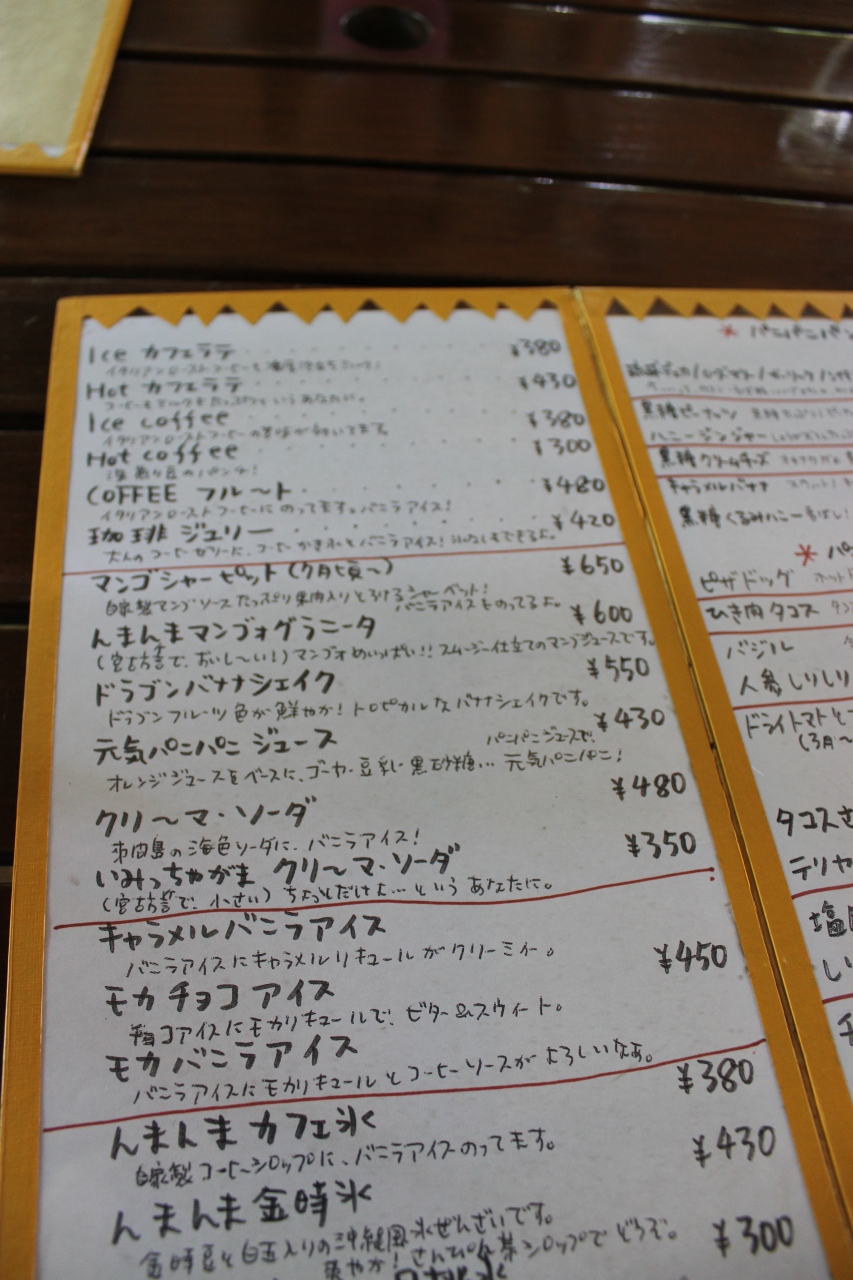 Ice カフェラテ ¥380
Hot カフェラテ ¥430
コーヒーもミルクもたっぷりというあなたに。
Ice coffee ¥380
イタリアンローストコーヒーの苦味が効いてます
Hot coffee ¥300
深煎り豆のパンチ!
COFFEE フル〜ト ¥480
イタリアンローストコーヒーにのってます。バニラアイス!
珈琲ジュリー ¥420
大人のコーヒーゼリーに、コーヒーかき氷とバニラアイス!
マンゴシャーピット(7月頃〜) ¥650
自家製マンゴソースたっぷり果肉入りとろけるシャーベット!
バニラアイスをのってるよ。
んまんまマンゴォグラニータ ¥600
(宮古方言で、おいし〜い!)マンゴォめいっぱい!!スムージー仕立てのマンゴジュースです。
ドラゴンバナナシェイク ¥550
ドラゴンフルーツ色が鮮やか!トロピカルなバナナシェイクです。
元気パニパニジュース ¥430
パニパニジュースで、
オレンジジュースをベースに、ゴーヤー豆乳黒砂糖… 元気パニパニ!
クリ〜マ・ソーダ ¥480
来間島の海色ソーダに、バニラアイス!
いみっちゃがま クリ〜マ・ソーダ ¥350
(宮古方言で、小さい)ちょっとだけよ…という あなたに。
キャラメルバニラアイス
バニラアイスにキャラメルリキュールがクリーミィー。
¥450
モカチョコアイス
チョコアイスにモカリキュールで、ビター&スウィート。
モカバニラアイス
バニラアイスにモカリキュールとコーヒーソースがよろしいなぁ。
んまんまカフェ氷 ¥380
自家製コーヒーシロップに、バニラアイスのってます。
んまんま金時氷 ¥430
金時豆と白玉入りの沖縄風氷ぜんざいです。
¥300
黒糖ピーナッツ
ハニージンジャー
黒糖クリームチーズ
キャラメルバナナ
黒糖くるみハニー
ピザドッグ
ひき肉タコス
バジル
人参しりしり
ドライトマトと
(3月〜
タコスさ
テリヤ